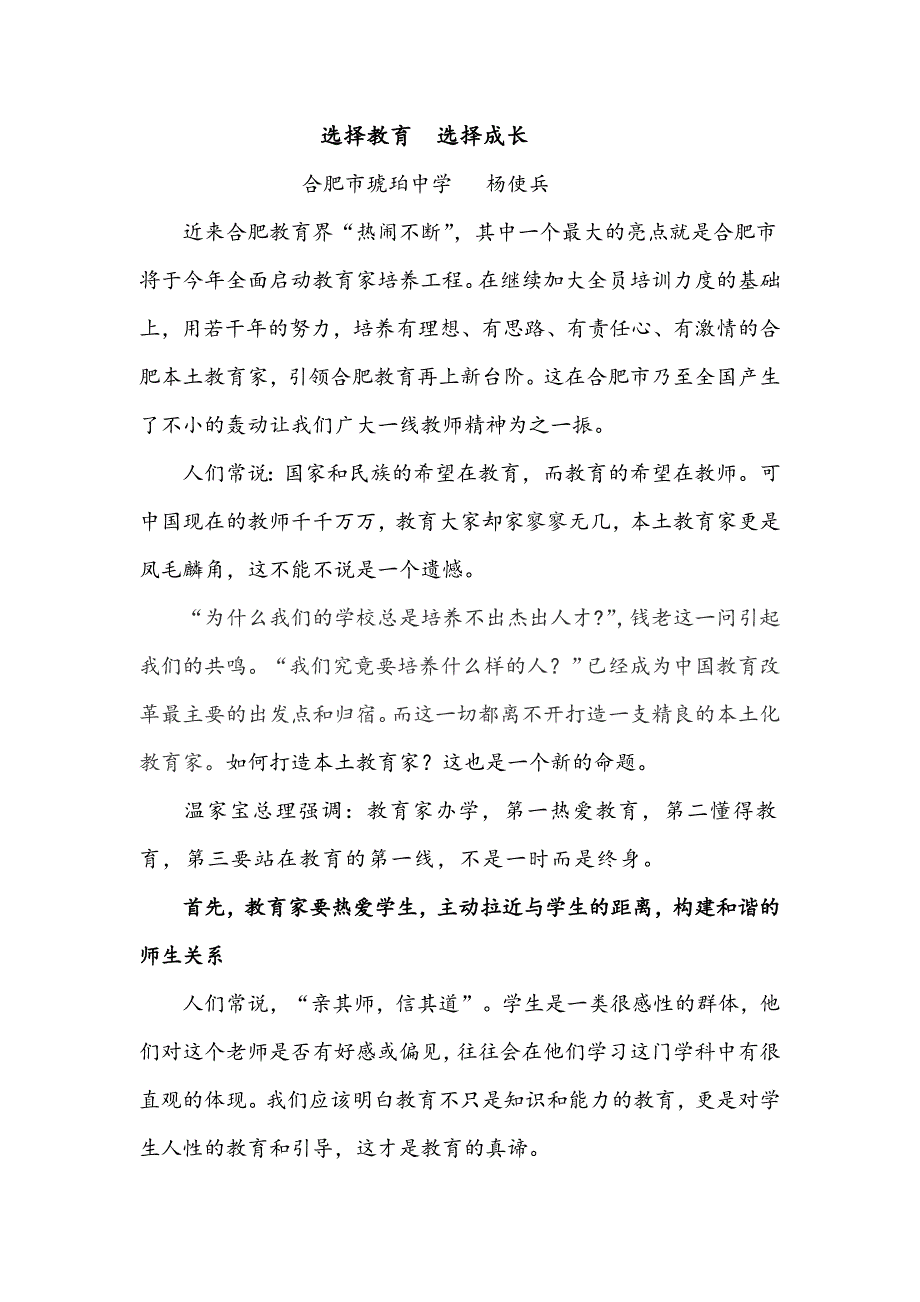 选择教育　选择成长
合肥市琥珀中学　杨使兵
近来合肥教育界“热闹不断”，其中一个最大的亮点就是合肥市
将于今年全面启动教育家培养工程。在继续加大全员培训力度的基础
上，用若干年的努力，培养有理想、有思路、有责任心、有激情的合
肥本土教育家，引领合肥教育再上新台阶。这在合肥市乃至全国产生
了不小的轰动让我们广大一线教师精神为之一振。
人们常说：国家和民族的希望在教育，而教育的希望在教师。可
中国现在的教师千千万万，教育大家却家寥寥无几，本土教育家更是
凤毛麟角，这不能不说是一个遗憾。
“为什么我们的学校总是培养不出杰出人才？”，钱老这一问引起
我们的共鸣。“我们究竟要培养什么样的人？”已经成为中国教育改
革最主要的出发点和归宿。而这一切都离不开打造一支精良的本土化
教育家。如何打造本土教育家？这也是一个新的命题。
温家宝总理强调：教育家办学，第一热爱教育，第二懂得教
育，第三要站在教育的第一线，不是一时而是终身。
首先，教育家要热爱学生，主动拉近与学生的距离，构建和谐的
师生关系
人们常说，“亲其师，信其道”。学生是一类很感性的群体，他
们对这个老师是否有好感或偏见，往往会在他们学习这门学科中有很
直观的体现。我们应该明白教育不只是知识和能力的教育，更是对学
生人性的教育和引导，这才是教育的真谛。